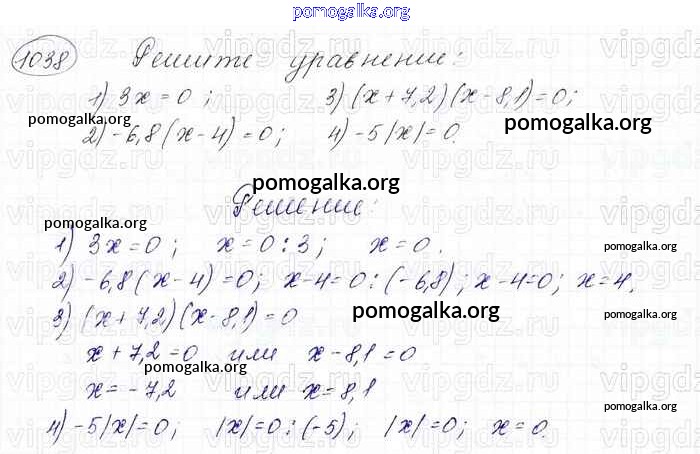 pomogalka.org
1038 Решите уравнение:
1) 3x = 0; 3) (x+7,2)(x-8,1)=0;
pomogalka.org pomogalka.org
2) -6,8(x-4)=0; 4) -5|x|=0.
pomogalka.org
Решение:
pomogalka.org
1) 3x=0; x=0:3; x=0.
pomogalka.org
2) -6,8(x-4)=0; x-4=0:(-6,8); x-4=0; x=4.
3) (x+7,2)(x-8,1)=0
pomogalka.org
pomogalka.org
x+7,2=0 или x-8,1=0
pomogalka.org
x=-7,2 или x=8,1
pomogalka.org
4) -5|x|=0; |x|=0:(-5); |x|=0; x=0.